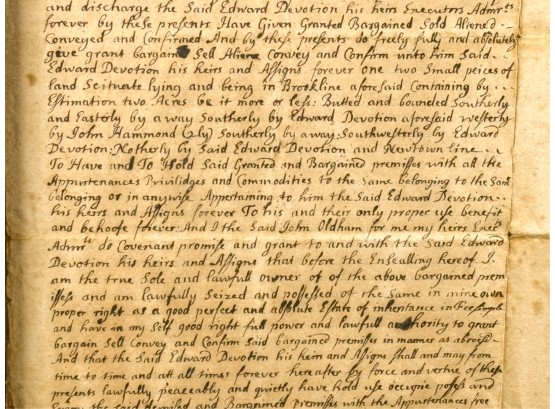 and discharge the Said Edward Devotion his heirs Executors Admrs
forever by these presents Have Given Granted Bargained Sold Aliened
Conveyed and Confirmed And by these presents do freely fully and absolutely
give grant bargain Sell Aliene Convey and Confirm unto him Said
Edward Devotion his heirs and Assigns forever one two Small peices of
land Scituate lying and being in Brookline aforesaid Containing by
Estimation two Acres be it more or less: Butted and bounded Southerly
and Easterly by a way Southerly by Edward Devotion aforesaid westerly
by John Hammond (2ly) Southerly by a way: Southwesterly by Edward
Devotion: Notherly by Said Edward Devotion and Newtown line
To Have and To Hold Said Granted and Bargained premisses with all the
Appurtenances Privilidges and Commodities to the Same belonging to the Same
belonging or in anywise Appertaining to him the Said Edward Devotion
his heirs and Assigns forever To his and their only proper use benefit
and behoofe forever: And I the Said John Oldham for me my heirs Exec
Admrs do Covenant promise and grant to and with the Said Edward
Devotion his heirs and Assigns that before the Ensealling hereof I
am the true Sole and lawfull owner of of the above bargained prem
isses and am lawfully Seized and possessed of the Same in mine own
proper right as a good perfect and absolute Estate of inheritance in Fee Simple
and have in my Self good right full power and lawfull authority to grant
bargain Sell Convey and Confirm Said bargained premisses in manner as aforesd
And that the Said Edward Devotion his heirs and Assigns Shall and may from
time to time and att all times forever hereafter by force and vertue of thes
presents lawfully peaceably and quietly have hold use occupie possess and
the Said demised and Bargained Premises with the Appurtenances free